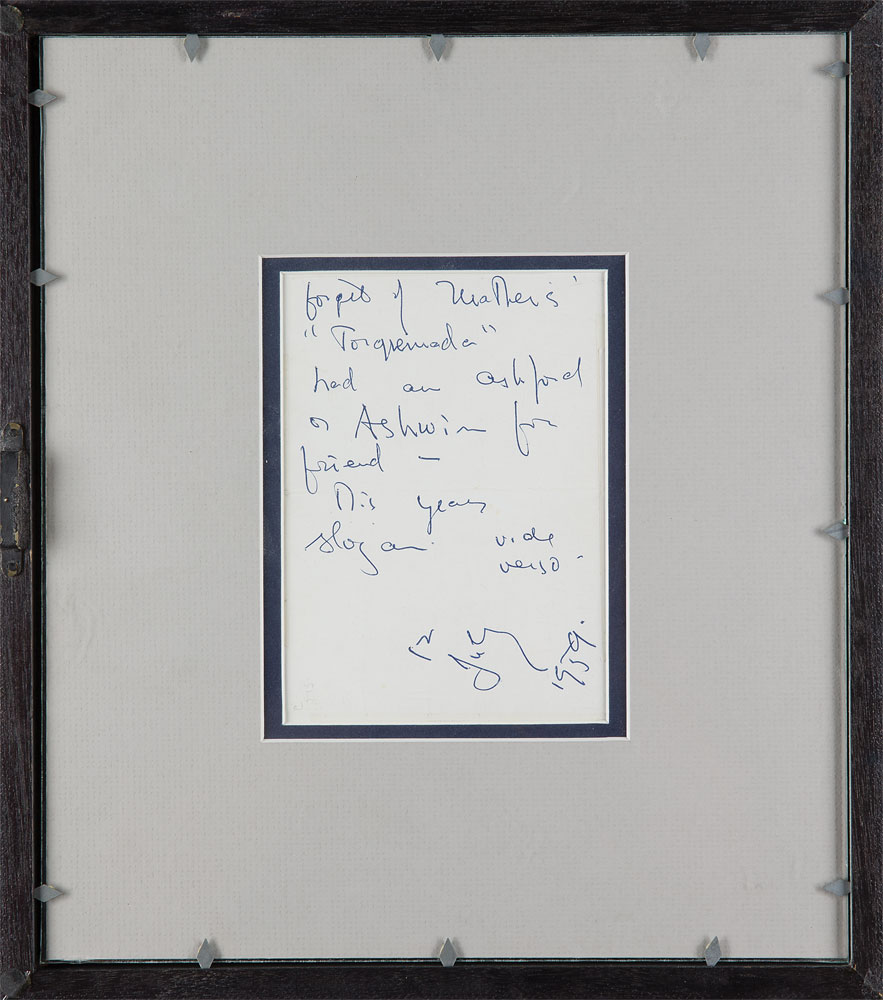 forget if Mather's
"Torquemada"
had an ashford
or Ashwin for
friend –
This years
slogan vide
verso –
12 July 1959.